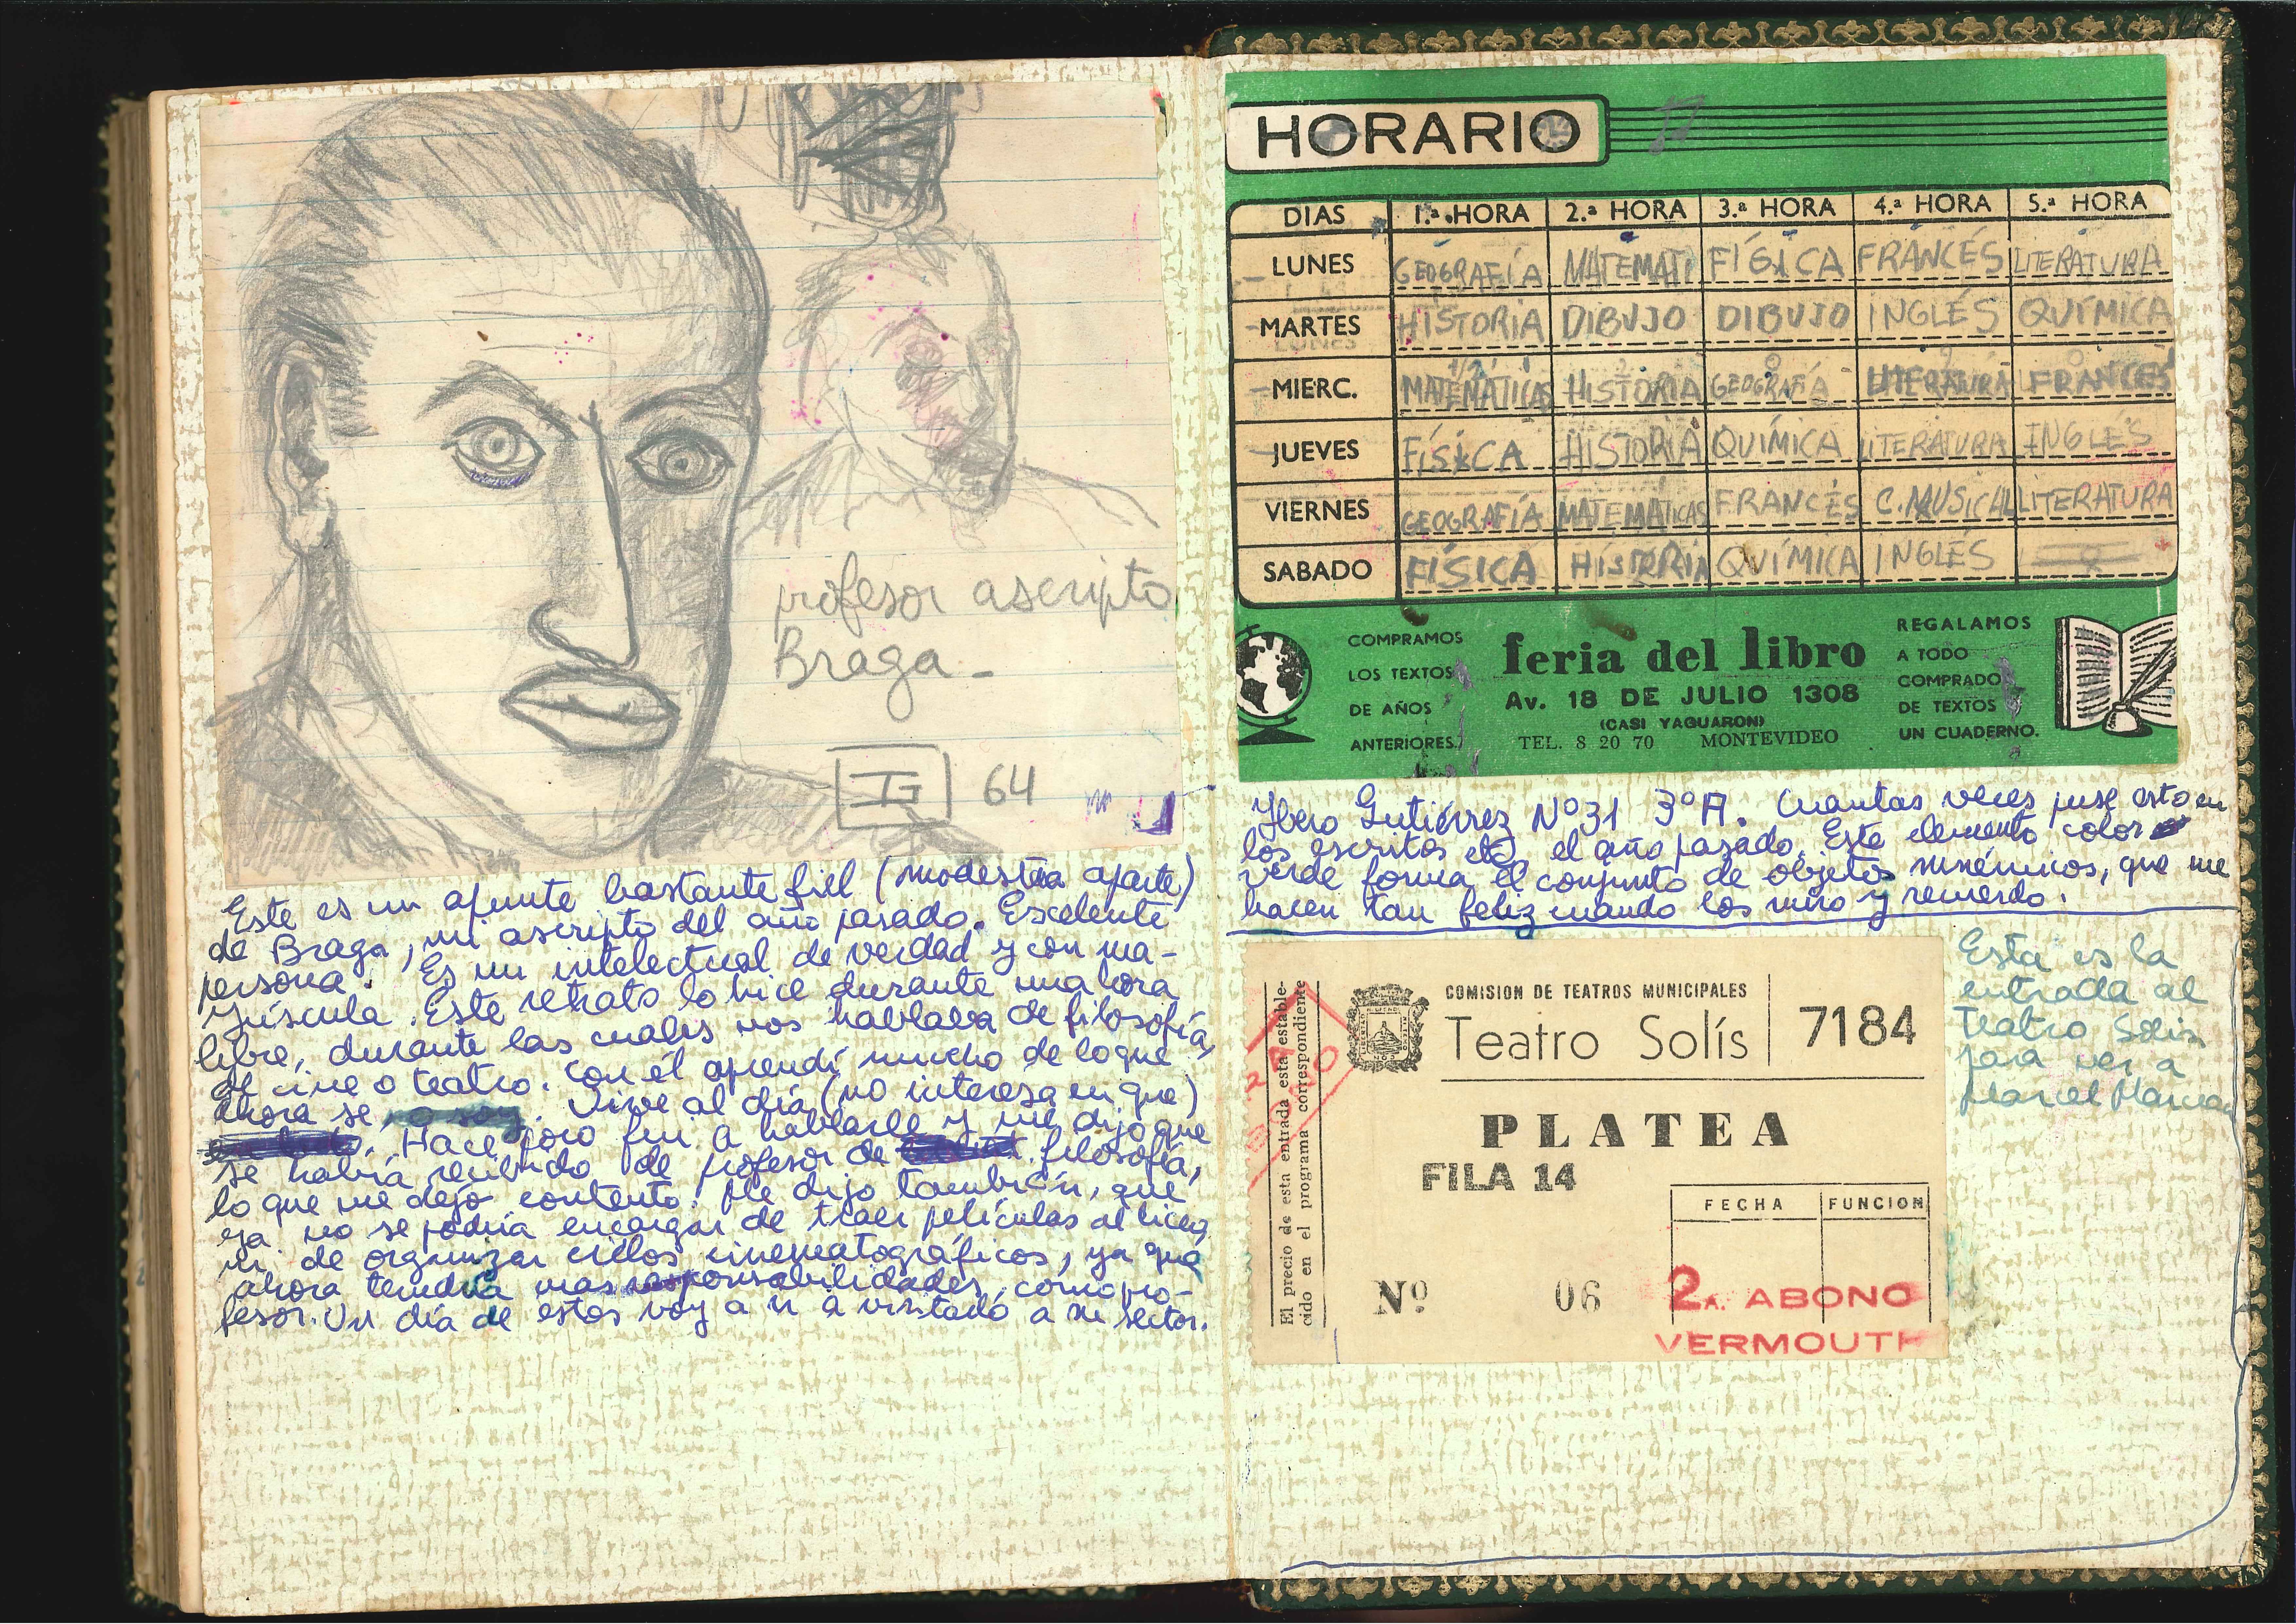 profesor ascripto
Braga_
IG 64
Este es un apunte bastante fiel (modestia aparte)
de Braga, mi ascripto del año pasado. Excelente
persona. Es un intelectual de verdad y con ma-
yúscula. Este retrato lo hice durante una hora
libre, durante las cuales nos hablaba de filosofía,
de cine o teatro. Con él aprendí mucho de lo que
ahora se, o soy. Vive al día (no interesa en que)
Hace poco fui a hablarle y me dijo que
se había recibido de profesor de filosofía,
lo que me dejó contento. Me dijo también, que
ya no se podría encargar de traer películas al liceo,
ni de organizar ciclos cinematográficos, ya que
ahora tendría mas responsabilidades, como pro-
fesor. Un día de estos voy a ir a visitarlo a su sector.
HORARIO
DIAS 1.ª HORA 2.ª HORA 3.ª HORA 4.ª HORA 5.ª HORA
LUNES GEOGRAFÍA MATEMATI FÍSICA FRANCÉS LITERATURA
MARTES HISTORIA DIBUJO DIBUJO INGLÉS QUÍMICA
MIERC. MATEMÁTICAS HISTORIA GEOGRAFÍA LITERATURA FRANCÉS
JUEVES FÍSICA HISTORIA QUÍMICA LITERATURA INGLÉS
VIERNES GEOGRAFÍA MATEMATICAS FRANCÉS C. MUSICAL LITERATURA
SABADO FÍSICA HISTORIA QUÍMICA INGLÉS
COMPRAMOS
LOS TEXTOS
DE AÑOS
ANTERIORES
feria del libro
Av. 18 DE JULIO 1308
(CASI YAGUARON)
TEL. 8 20 70 MONTEVIDEO
REGALAMOS
A TODO
COMPRADO
DE TEXTOS
UN CUADERNO.
Ibero Gutiérrez Nº31 3ºA. Cuantas veces puse esto en
los escritos etc, el año pasado. Este elemento color
verde forma el conjunto de objetos mnémicos, que me
hacen tan feliz cuando los miro y recuerdo.
El precio de esta entrada está estable-
cido en el programa correspondiente
COMISION DE TEATROS MUNICIPALES
Teatro Solís 7184
PLATEA
FILA 14
FECHA FUNCION
Nº 06
2A. ABONO
VERMOUTH
Esta es la
entrada al
Teatro Solís
para ver a
Marcel Marceau